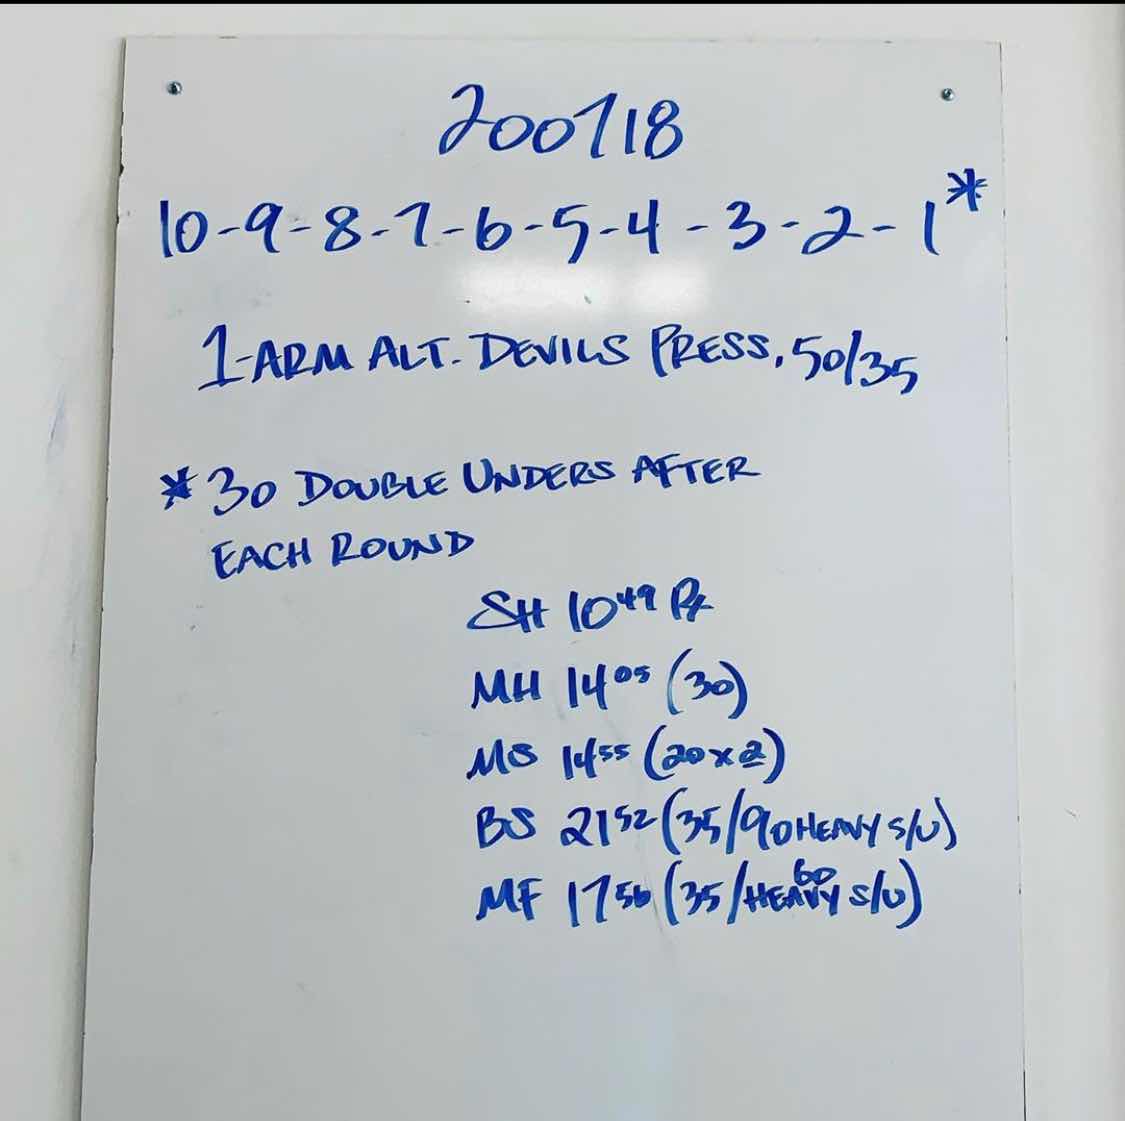 200718
10-9-8-7-6-5-4-3-2-1*
1-ARM ALT. DEVILS PRESS, 50/35
*30 DOUBLE UNDERS AFTER
EACH ROUND
SH 10⁴⁹ Rx
MH 14⁰⁵ (30)
MS 14⁵⁵ (20x2)
BS 21⁵² (35/90 HEAVY S/U)
MF 17⁵⁶ (35/60 HEAVY S/U)